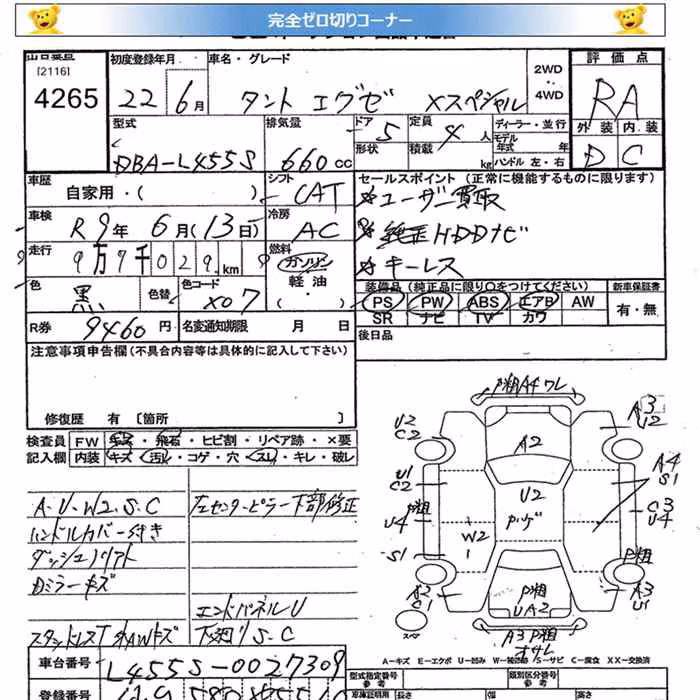 完全ゼロ切りコーナー
[2116]
4265
初度登録年月
22年6月
車名・グレード
タント エグゼ Xスペシャル
2WD
・
4WD
評価点
RA
外装 内装
D C
型式
DBA-L455S
排気量
660cc
ドア
5
形状
定員
4人
積載
kg
ディーラー・並行
モデル年式 年
ハンドル 左・右
車歴
自家用・(
)
シフト
CAT
セールスポイント (正常に機能するものに限ります)
☆ユーザー買取
☆純正HDDナビ
☆キーレス
車検
R9年 6月(13日)
冷房
AC
走行
9万7千029km
燃料
ガソリン
軽油
・( )
色
黒
色替
色コード
X07
装備品 (純正品に限り○をつけてください)
PS PW ABS エアB AW
SR ナビ TV カワ
新車保証書
有・無
R券
9460円
名変通知期限 月 日
後日品
注意事項申告欄(不具合内容等は具体的に記入して下さい)
修復歴 有 [箇所 ]
検査員
記入欄
FW キズ・飛石・ヒビ割・リペア跡・×要
内装 キズ・汚レ・コゲ・穴・スレ・キレ・破レ
A・U・W2・S・C
ハンドルカバー付き
ダッシュノリアト
Dミラーキズ
スタッドレスT 外AWキズ
左センターピラー下部修正
エンドパネルU
下廻りS・C
P粗A4ワレ
A2
U2
C2
A3
U2
U1
C2
A4
S1
U2
Pハゲ
P粗
U4
C3
U4
W2
S1
P粗
A2
C1
P粗
UA2
A3
U1
スペア
A3P粗
オサレ
A=キズ E=エクボ U=凹み W=補修跡 S=サビ C=腐食 XX=交換済
車台番号
L455S-0027309
登録番号
型式指定番号
参考
類別区分番号
参考
車庫証明用
長さ
幅
高さ